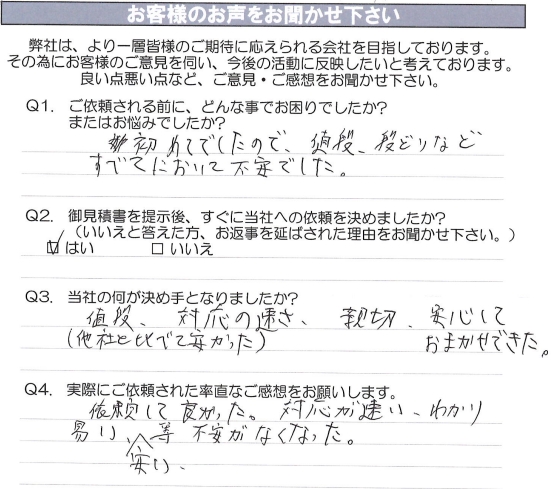 お客様のお声をお聞かせ下さい
弊社は、より一層皆様のご期待に応えられる会社を目指しております。
その為にお客様のご意見を伺い、今後の活動に反映したいと考えております。
良い点悪い点など、ご意見・ご感想をお聞かせ下さい。
Q1. ご依頼される前に、どんな事でお困りでしたか?
またはお悩みでしたか?
初めてでしたので、値段、段どりなど
すべてにおいて不安でした。
Q2. 御見積書を提示後、すぐに当社への依頼を決めましたか?
(いいえと答えた方、お返事を延ばされた理由をお聞かせ下さい。)
☑はい □いいえ
Q3. 当社の何が決め手となりましたか?
値段、対応の速さ、親切、安心して
(他社と比べて安かった) おまかせできた。
Q4. 実際にご依頼された率直なご感想をお願いします。
依頼して良かった。対応が速い、わかり
易い、等不安がなくなった。
安い、